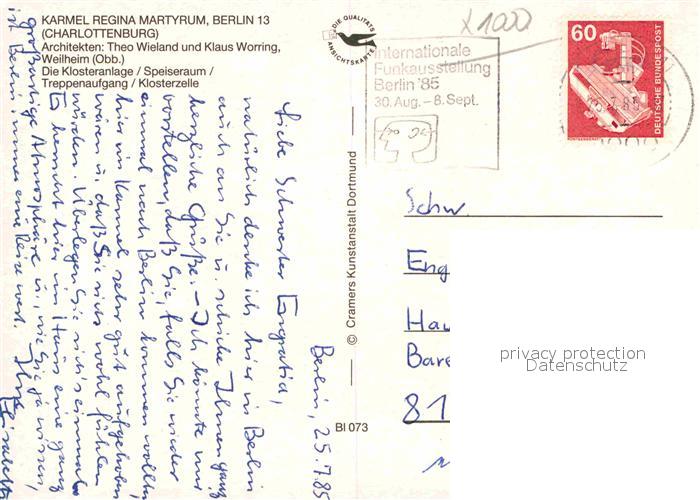 KARMEL REGINA MARTYRUM, BERLIN 13
(CHARLOTTENBURG)
Architekten: Theo Wieland und Klaus Worring,
Weilheim (Obb.)
Die Klosteranlage / Speiseraum /
Treppenaufgang / Klosterzelle
DIE QUALITÄTS
ANSICHTSKARTE
x1000
Internationale
Funkausstellung
Berlin '85
30. Aug. – 8. Sept.
60
DEUTSCHE BUNDESPOST
Berlin, 25.7.85
Liebe Schwester Engratia,
natürlich denke ich hier in Berlin
auch an Sie u. schicke Ihnen ganz
herzliche Grüße. – Ich könnte mir
vorstellen, daß Sie, falls Sie wieder
einmal nach Berlin kommen wollten,
hier im Karmel sehr gut aufgehoben
wären u. daß Sie sich wohl fühlen
würden. Überlegen Sie sich's einmal.
Es herrscht hier im Haus eine ganz
großartige Atmosphäre u., wie Sie ja wissen,
ist Berlin immer eine Reise wert. Ihre
Elisabeth
© Cramers Kunstanstalt Dortmund
BI 073
Schw.
Eng
Hau
Bare
81
privacy protection
Datenschutz